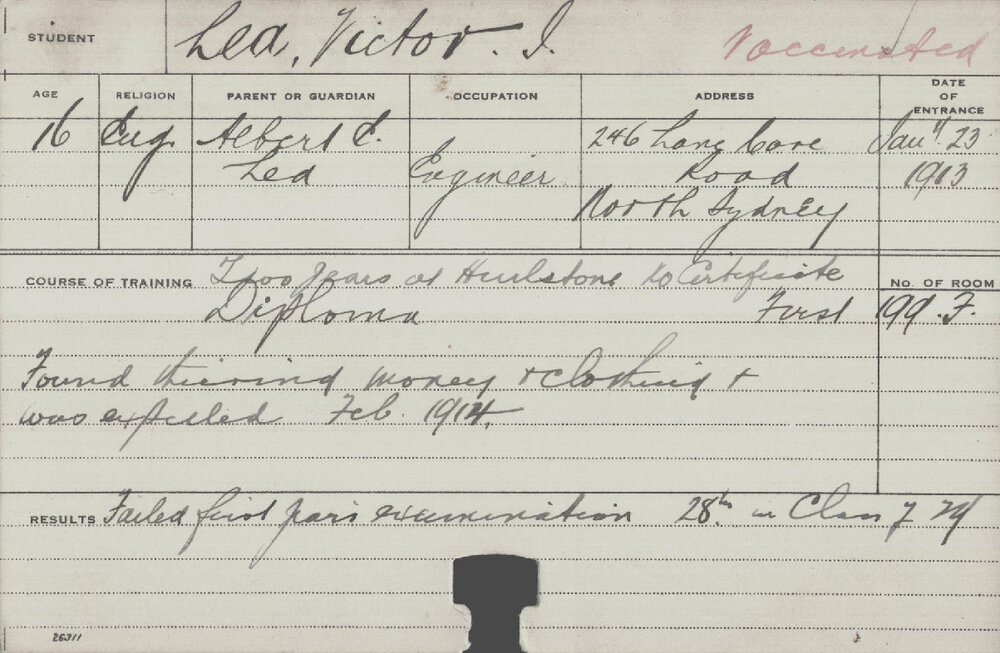 STUDENT Lea, Victor. I. Vaccinated
AGE RELIGION PARENT OR GUARDIAN OCCUPATION ADDRESS DATE OF ENTRANCE
16 Eng. Albert E. Lea Engineer 246 Lane Cove Road North Sydney Jany. 23 1913
COURSE OF TRAINING Two years at Hurlstone to Certificate No. OF ROOM
Diploma First 199. F.
Found thieving money + clothing +
was expelled Feb. 1914.
RESULTS Failed first years examination 28th in Class of 29
26311